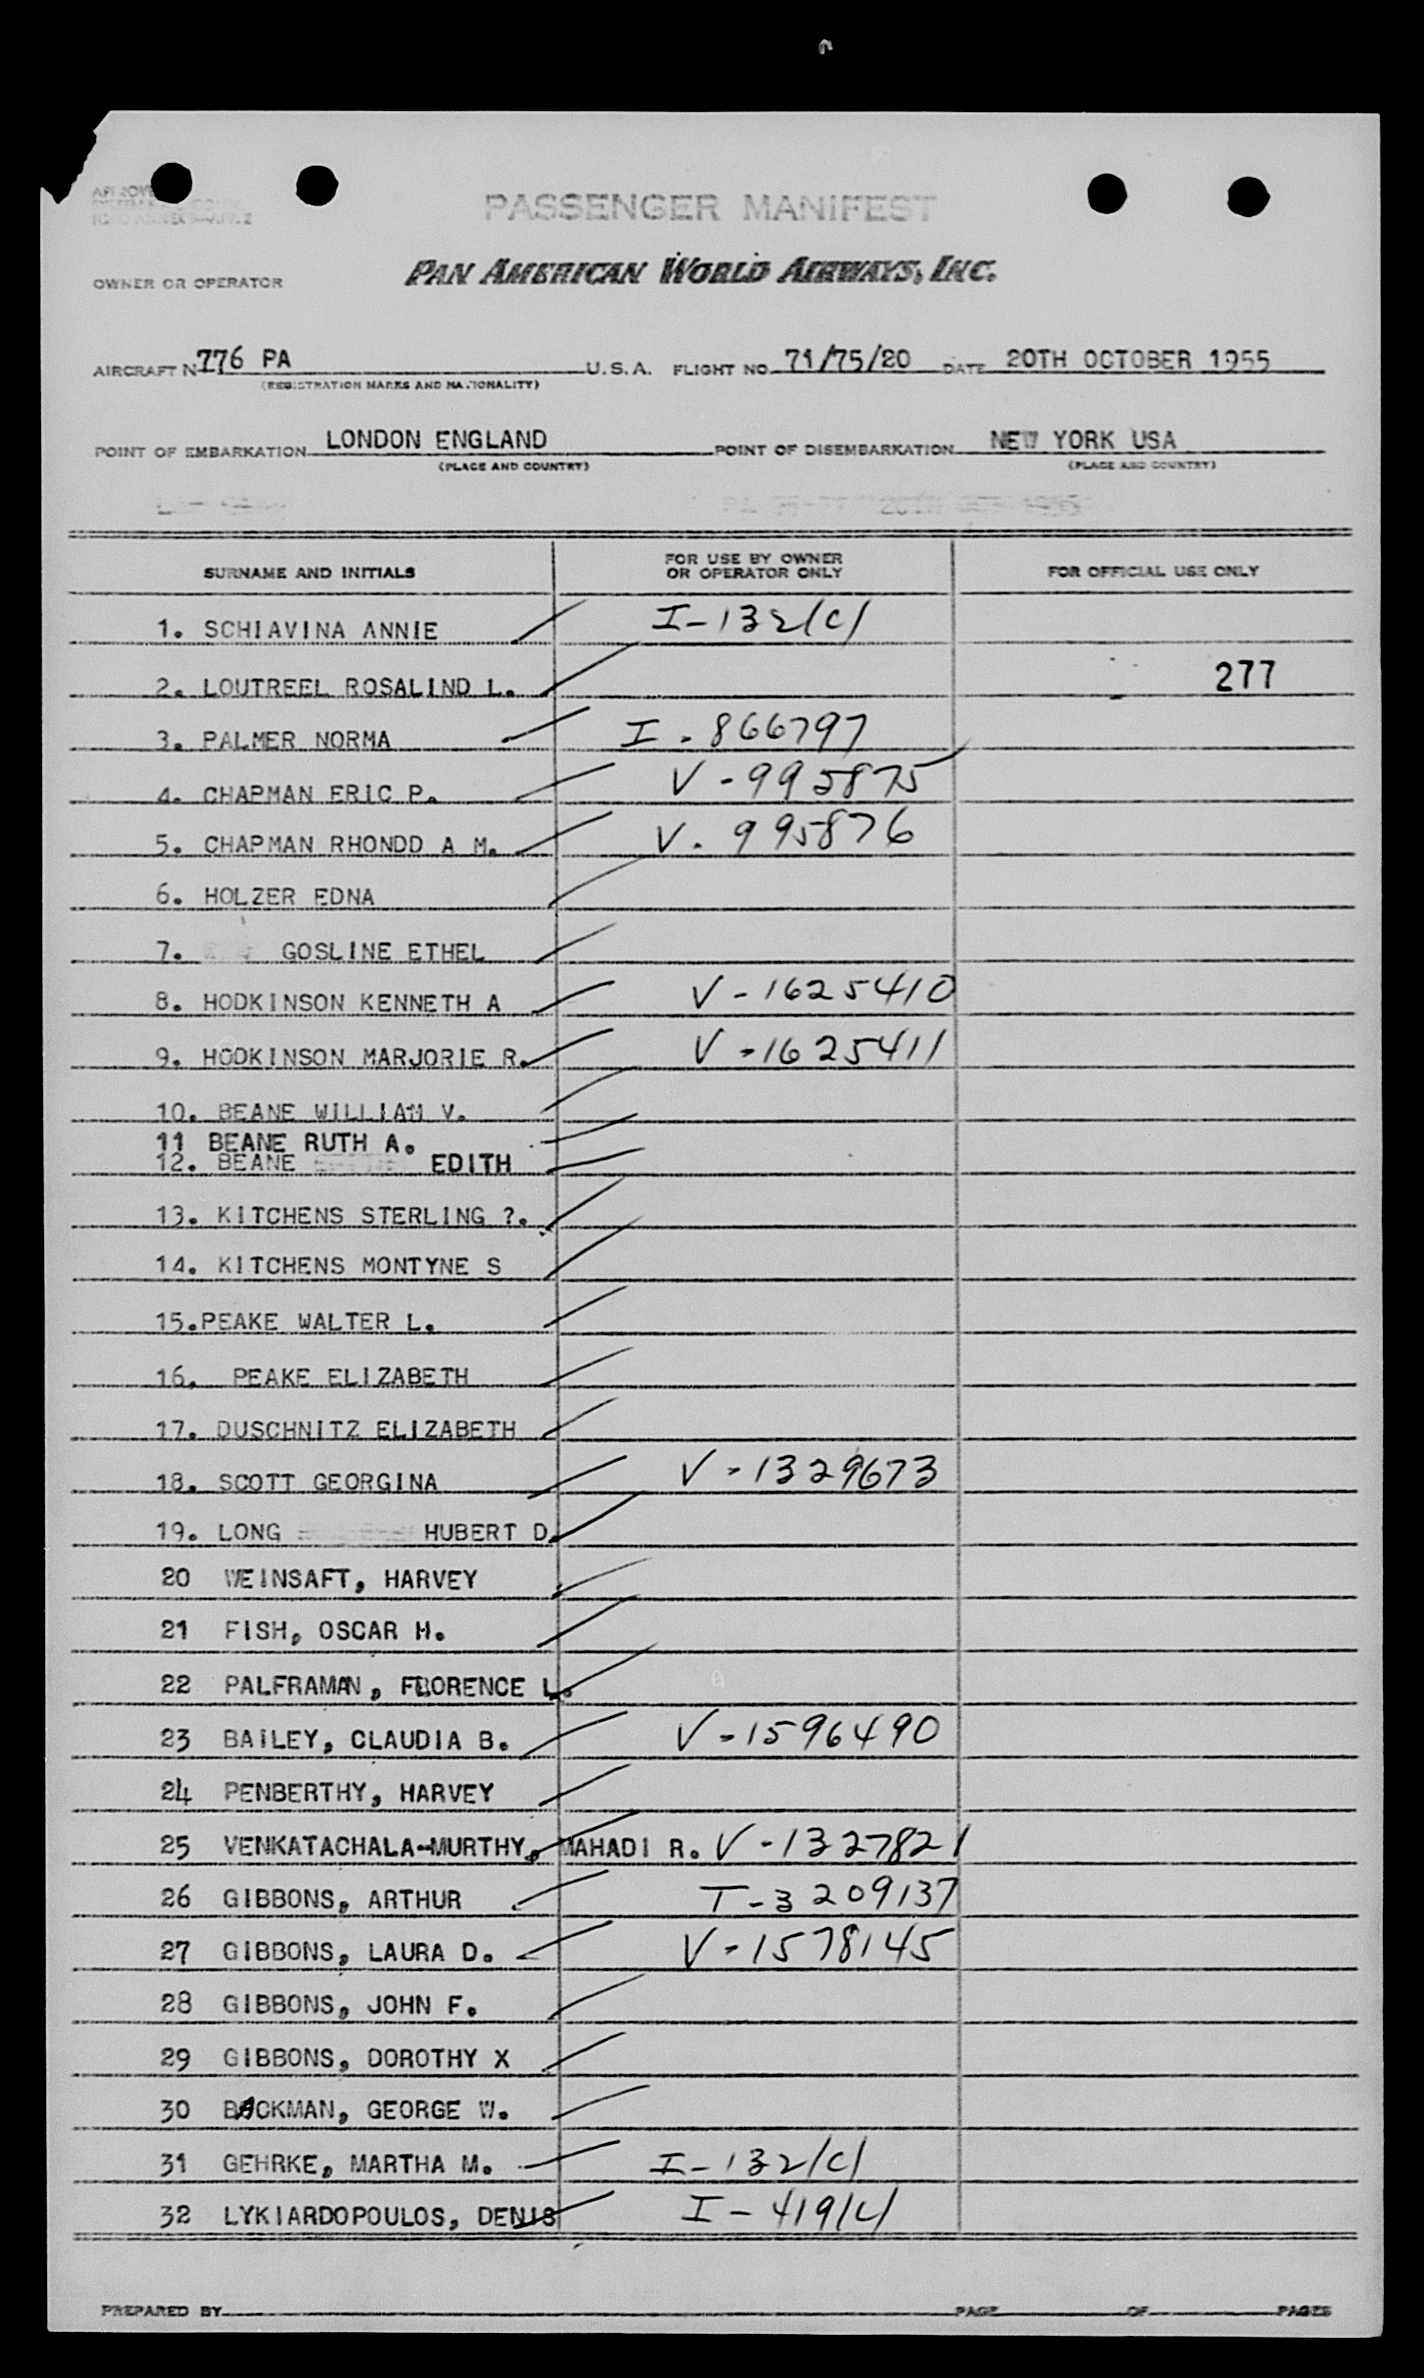 PASSENGER MANIFEST
OWNER OR OPERATOR PAN AMERICAN WORLD AIRWAYS, INC.
AIRCRAFT N776 PA U.S.A. FLIGHT NO. 71/75/20 DATE 20TH OCTOBER 1955
(REGISTRATION MARKS AND NATIONALITY)
POINT OF EMBARKATION LONDON ENGLAND POINT OF DISEMBARKATION NEW YORK USA
(PLACE AND COUNTRY) (PLACE AND COUNTRY)
SURNAME AND INITIALS FOR USE BY OWNER OR OPERATOR ONLY FOR OFFICIAL USE ONLY
1. SCHIAVINA ANNIE I-132/c/
2. LOUTREEL ROSALIND L. 277
3. PALMER NORMA I-866797
4. CHAPMAN ERIC P. V-995875
5. CHAPMAN RHONDD A M. V-995876
6. HOLZER EDNA
7. GOSLINE ETHEL
8. HODKINSON KENNETH A V-1625410
9. HODKINSON MARJORIE R. V-1625411
10. BEANE WILLIAM V.
11 BEANE RUTH A.
12. BEANE EDITH
13. KITCHENS STERLING ?.
14. KITCHENS MONTYNE S
15.PEAKE WALTER L.
16. PEAKE ELIZABETH
17. DUSCHNITZ ELIZABETH
18. SCOTT GEORGINA V-1329673
19. LONG HUBERT D.
20 WEINSAFT, HARVEY
21 FISH, OSCAR H.
22 PALFRAMAN, FLORENCE L.
23 BAILEY, CLAUDIA B. V-1596490
24 PENBERTHY, HARVEY
25 VENKATACHALA-MURTHY, MAHADI R. V-1327821
26 GIBBONS, ARTHUR T-3209137
27 GIBBONS, LAURA D. V-1578145
28 GIBBONS, JOHN F.
29 GIBBONS, DOROTHY X
30 BACKMAN, GEORGE W.
31 GEHRKE, MARTHA M. I-132/c/
32 LYKIARDOPOULOS, DENIS I-419/c/
PREPARED BY PAGE OF PAGES